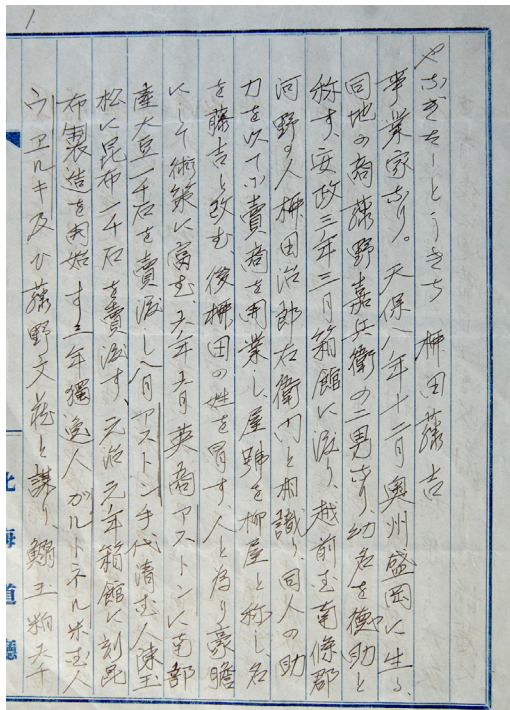 1.
やなぎだーとうきち 柳田藤吉
事業家なり。天保八年十二月奥州盛岡に生る、
同地の商藤野嘉兵衛の二男なり、幼名を徳助と
称す、安政三年三月箱館に渡り、越前国南條郡
河野の人柳田治郎右衛門と相識り同人の助
力を以て小賣商を開業し、屋號を柳屋と称し、名
を藤吉と改む、後柳田の姓を冒す、人と為り豪膽
にして術策に富む、六年五月英商アストンに南部
産大豆一千石を賣渡し八月アストン手代清国人陳玉
松に昆布一千石を賣渡す、元治元年箱館に刻昆
布製造を開始す三年獨逸人ガルトネル米国人
ウヱルキ及び藤野文蔵と謀り鰯玉粕六千
北海道廳